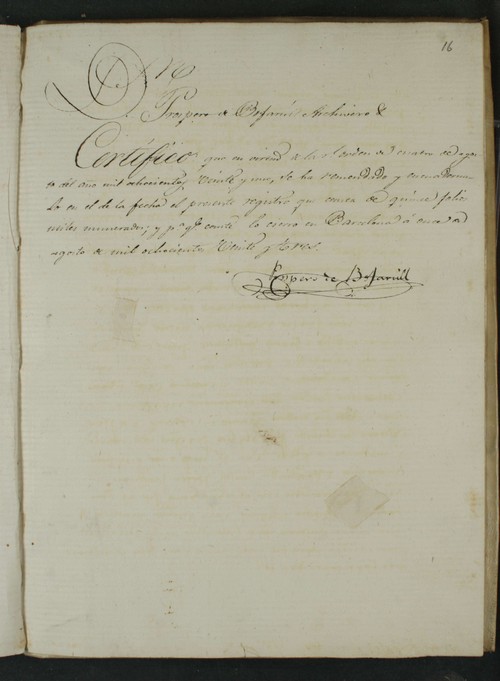 16
Dn.
Prospero de Bofarull Archivero &
Certifico que en virtud de la Rl. orden de cuatro de Ago-
to del año mil ochocientos Veinte y uno, se ha remendado y encuaderna-
do en el de la fecha el presente registro que consta de quince folios
utiles numerados; y pa. qe. conste lo cierro en Barcelona á once de
agosto de mil ochocientos Veinte y tres.
Prospero de Bofarull